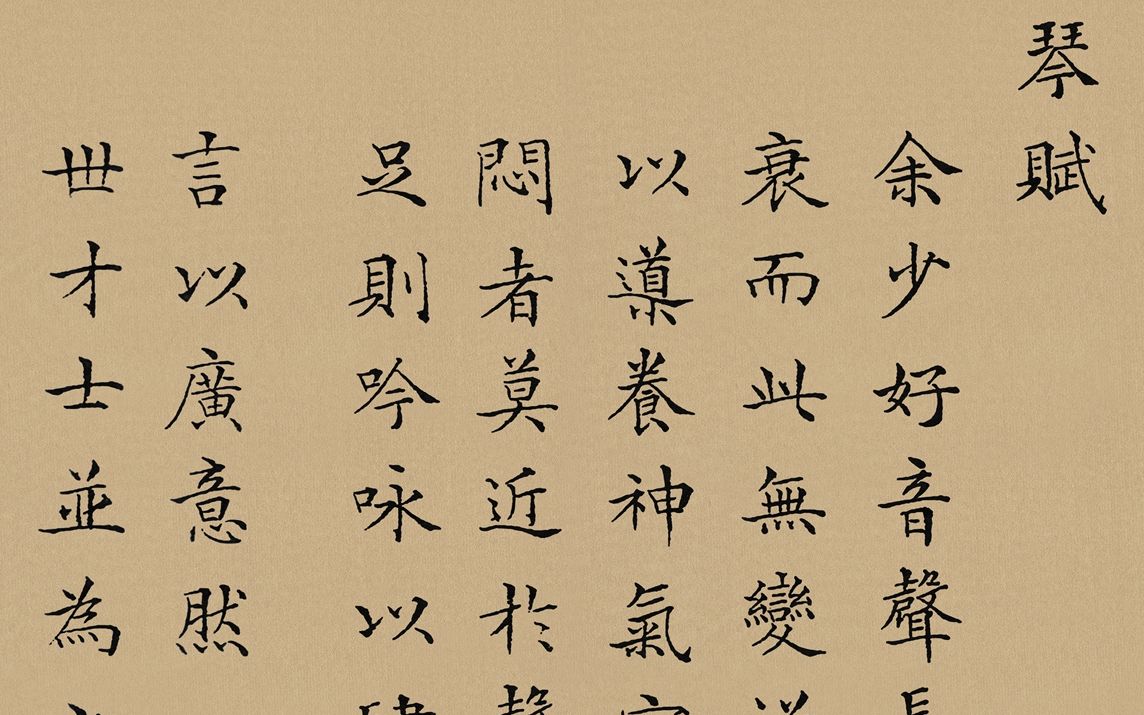 琴賦
余少好音聲
衰而此無變
以導養神氣
悶者莫近於
足則吟咏以
言以廣意然
世才士並為